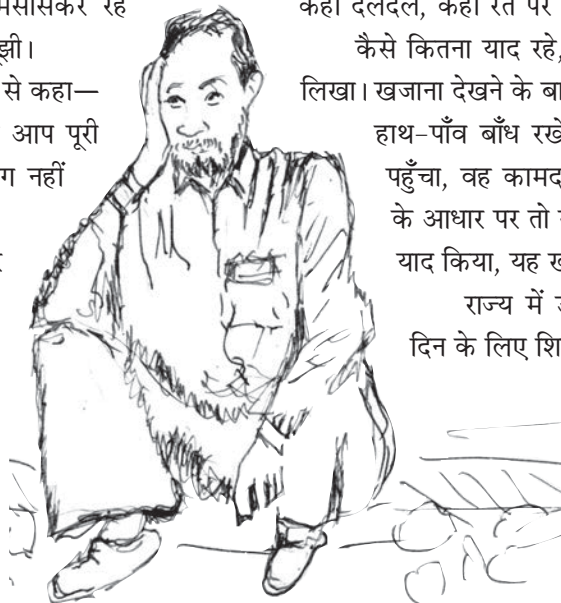 मसोसकर रह
से कहा—
आप पूरी
नहीं
कहीं दलदल, कहीं रेत पर
कैसे कितना याद रहे,
लिखा। खजाना देखने के बा
हाथ-पाँव बाँध रखे
पहुँचा, वह कामद
के आधार पर तो
याद किया, यह
राज्य में
दिन के लिए शि